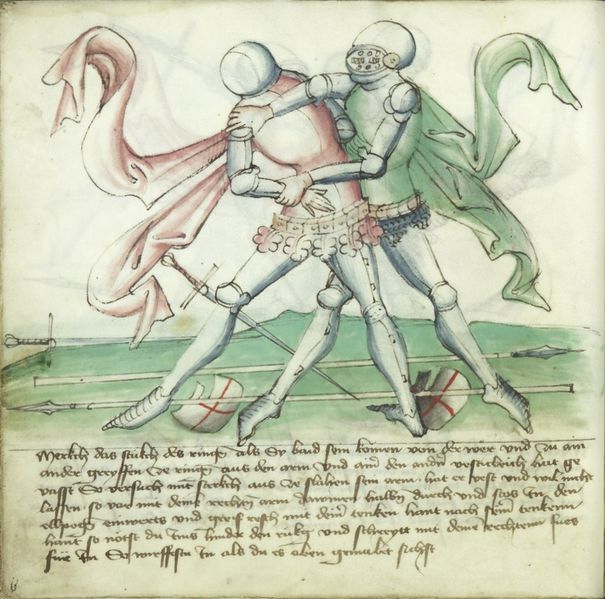 Merckh das stückh des ring als Sy baid sein komen von der wer und zu ain
ander greyffen Ze ring aus den arm und ainer den andern hat ge
vasst So versuch mit sterckh aus Ze slahen sein arm hat er vest und wil nicht
lassen so var mit deine rechtn arm halbn durch und stos in den
elpogn einwerts und greif resch mit deinr tenken hant nach seinr tenken
hant so nötst du ims hinder den rukg und schreytt mit deine rechtenn fues
für in So wirffestu in als du es oben gemalet sichst